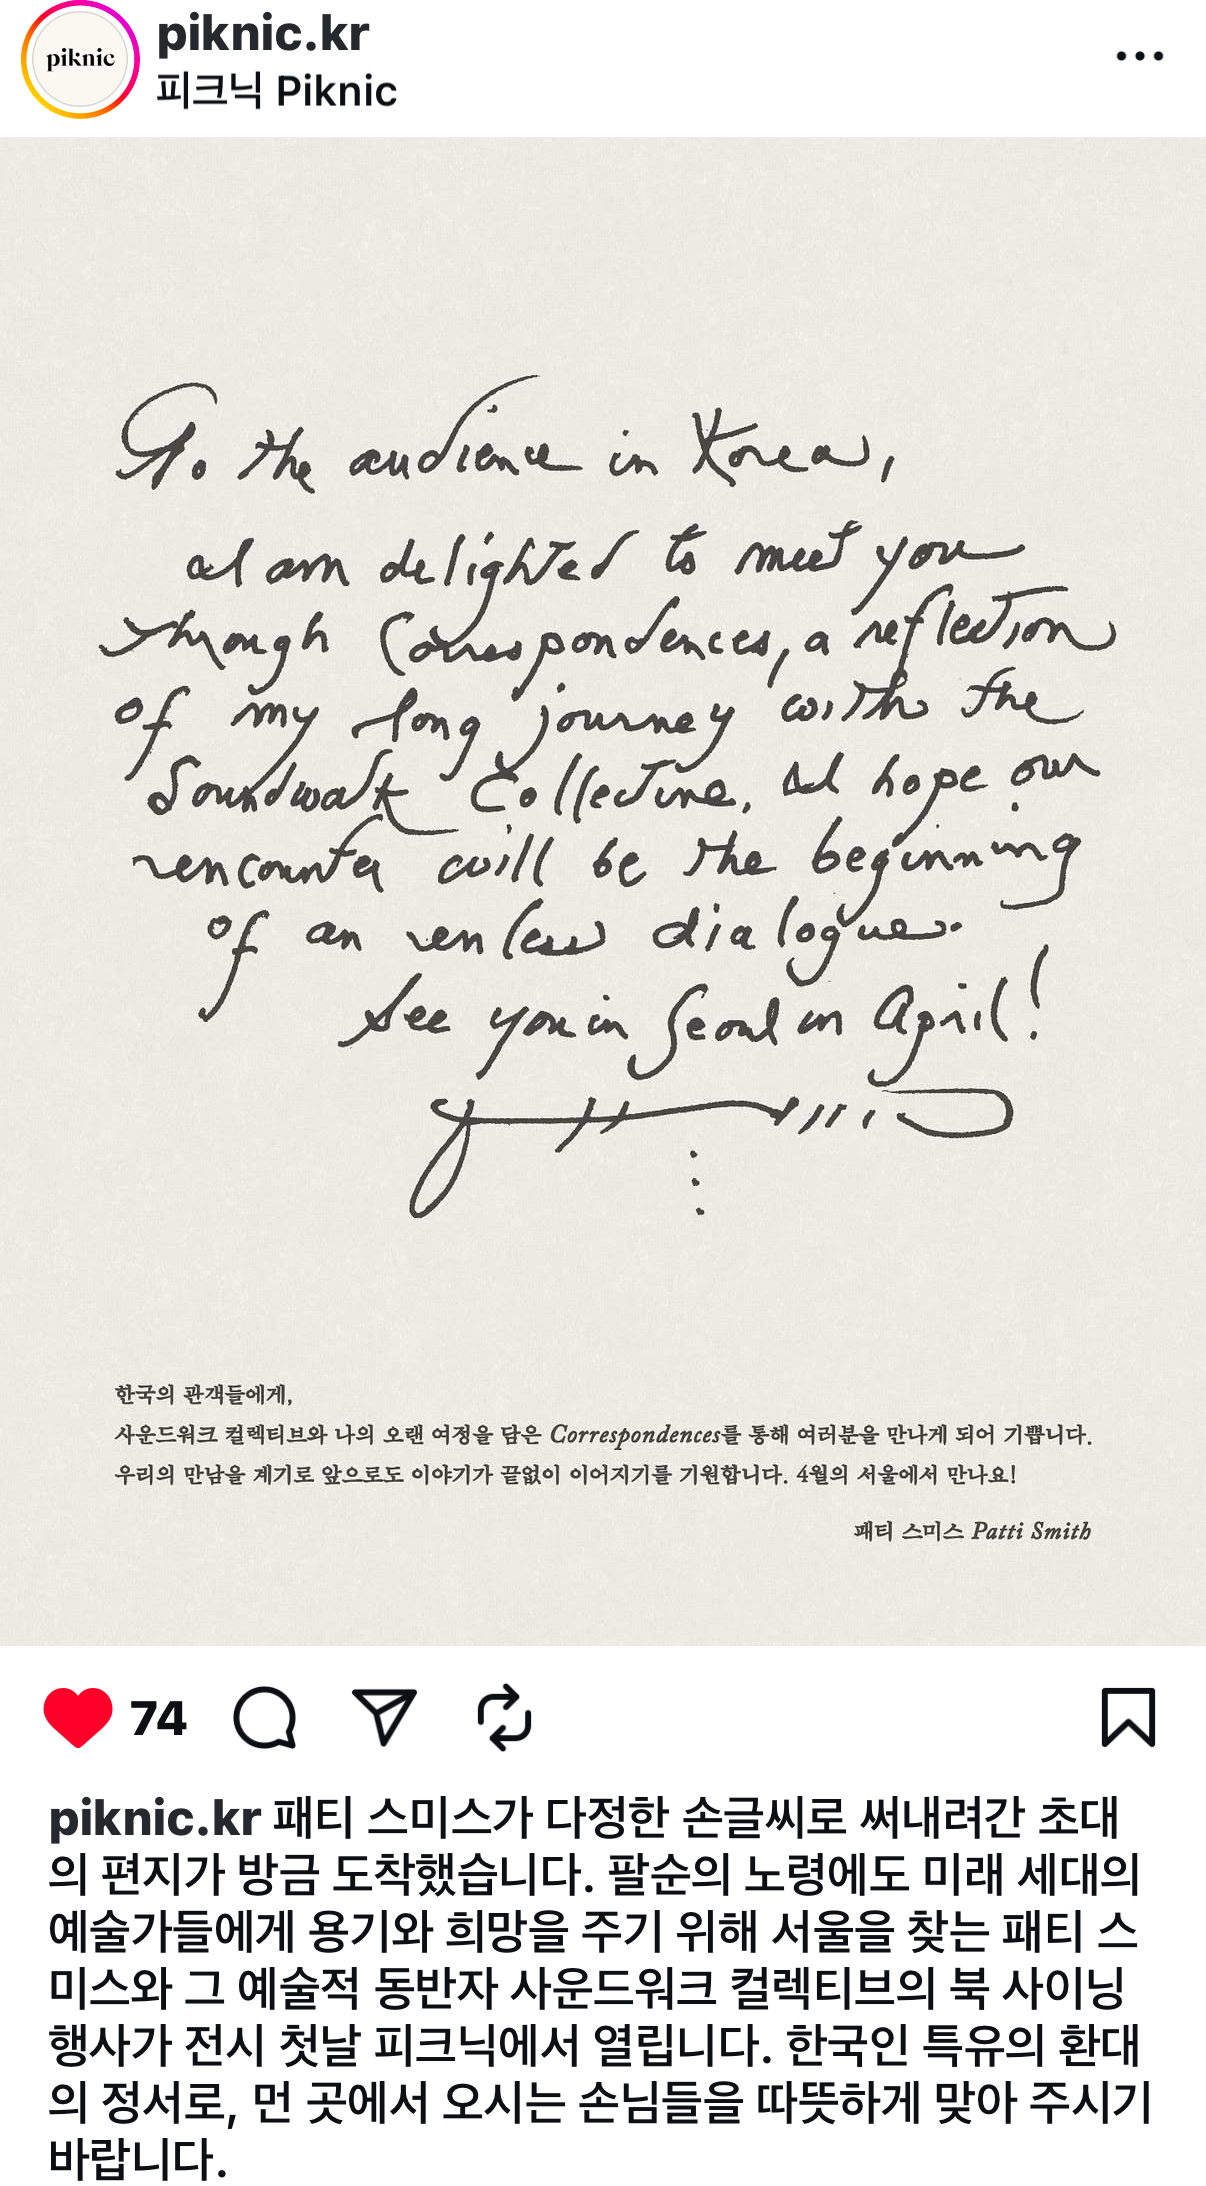 piknic
piknic.kr
피크닉 Piknic
To the audience in Korea,
I am delighted to meet you
through Correspondences, a reflection
of my long journey with the
Soundwalk Collective. I hope our
rencounter will be the beginning
of an dialogue.
See you in Seoul in April!
한국의 관객들에게,
사운드워크 컬렉티브와 나의 오랜 여정을 담은 Correspondences를 통해 여러분을 만나게 되어 기쁩니다.
우리의 만남을 계기로 앞으로도 이야기가 끝없이 이어지기를 기원합니다. 4월의 서울에서 만나요!
패티 스미스 Patti Smith
74
piknic.kr 패티 스미스가 다정한 손글씨로 써내려간 초대
의 편지가 방금 도착했습니다. 팔순의 노령에도 미래 세대의
예술가들에게 용기와 희망을 주기 위해 서울을 찾는 패티 스
미스와 그 예술적 동반자 사운드워크 컬렉티브의 북 사이닝
행사가 전시 첫날 피크닉에서 열립니다. 한국인 특유의 환대
의 정서로, 먼 곳에서 오시는 손님들을 따뜻하게 맞아 주시기
바랍니다.